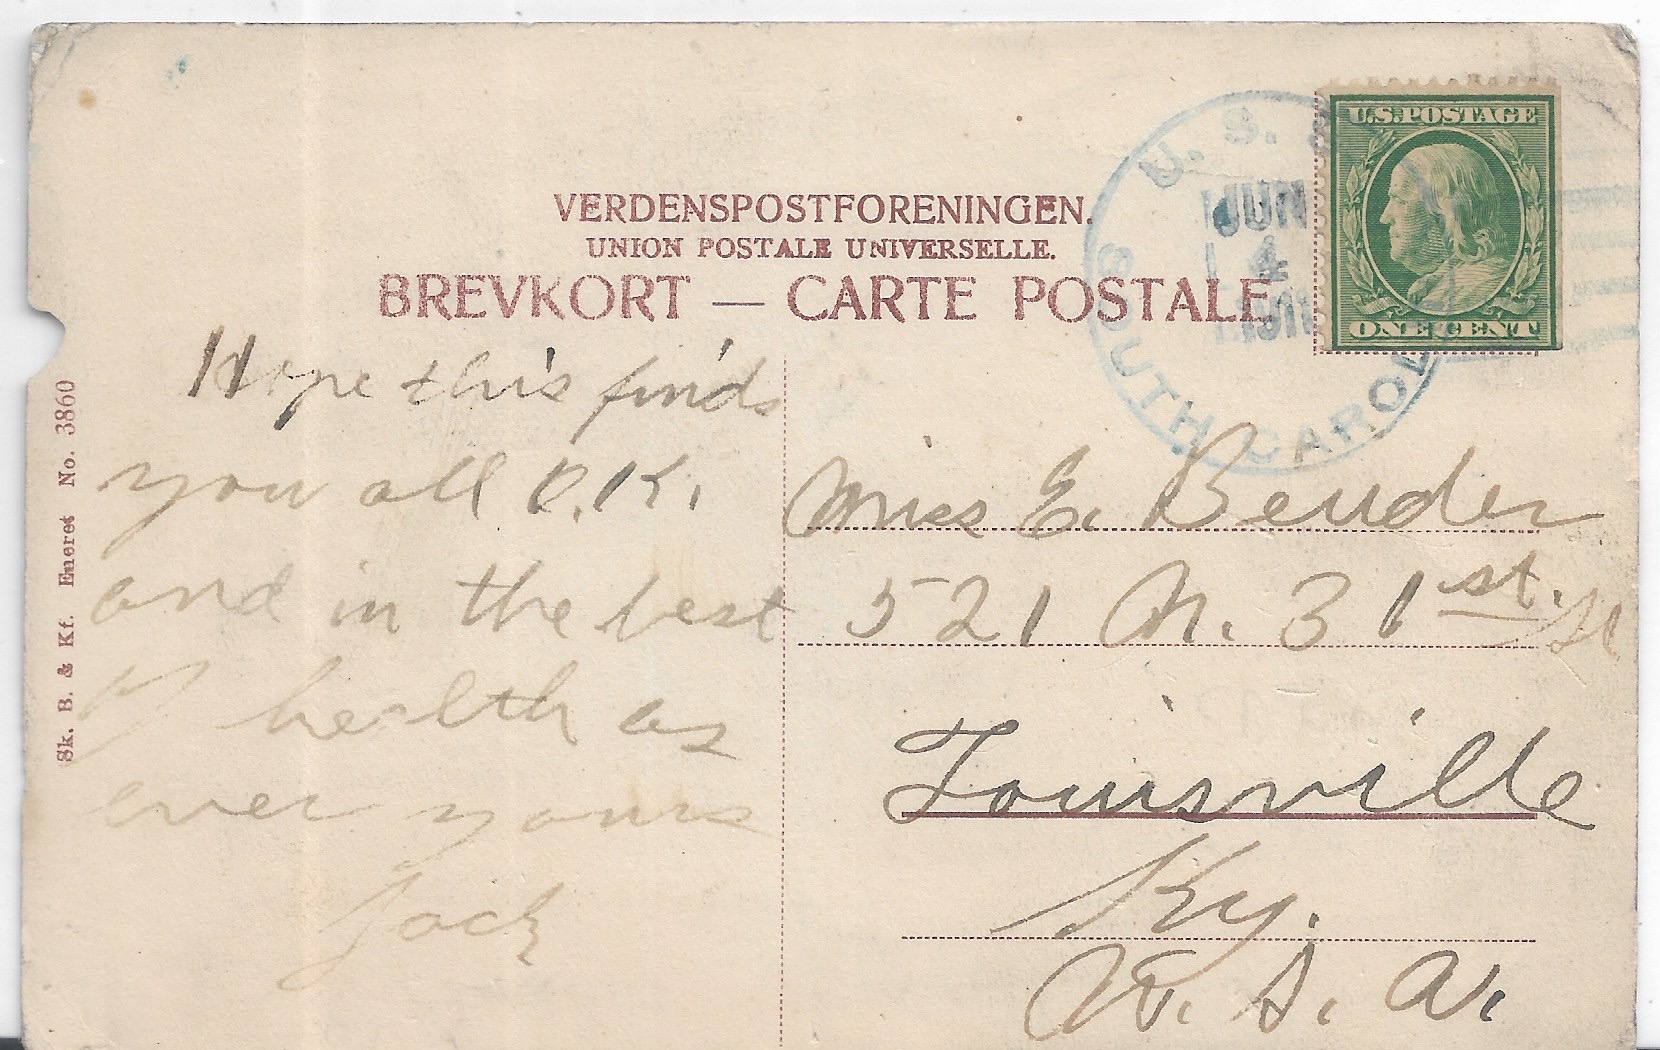 VERDENSPOSTFORENINGEN.
UNION POSTALE UNIVERSELLE.
BREVKORT — CARTE POSTALE.
U.S.
JUN
4
SOUTH CAROL
U.S. POSTAGE
ONE CENT
Sk. B. & Kf. Eneret No. 3860
Hope this finds
you all O.K.
and in the best
of health as
ever yours
Jack
Miss E. Bender
521 N. 31st. St
Louisville
Ky.
U. S. A.